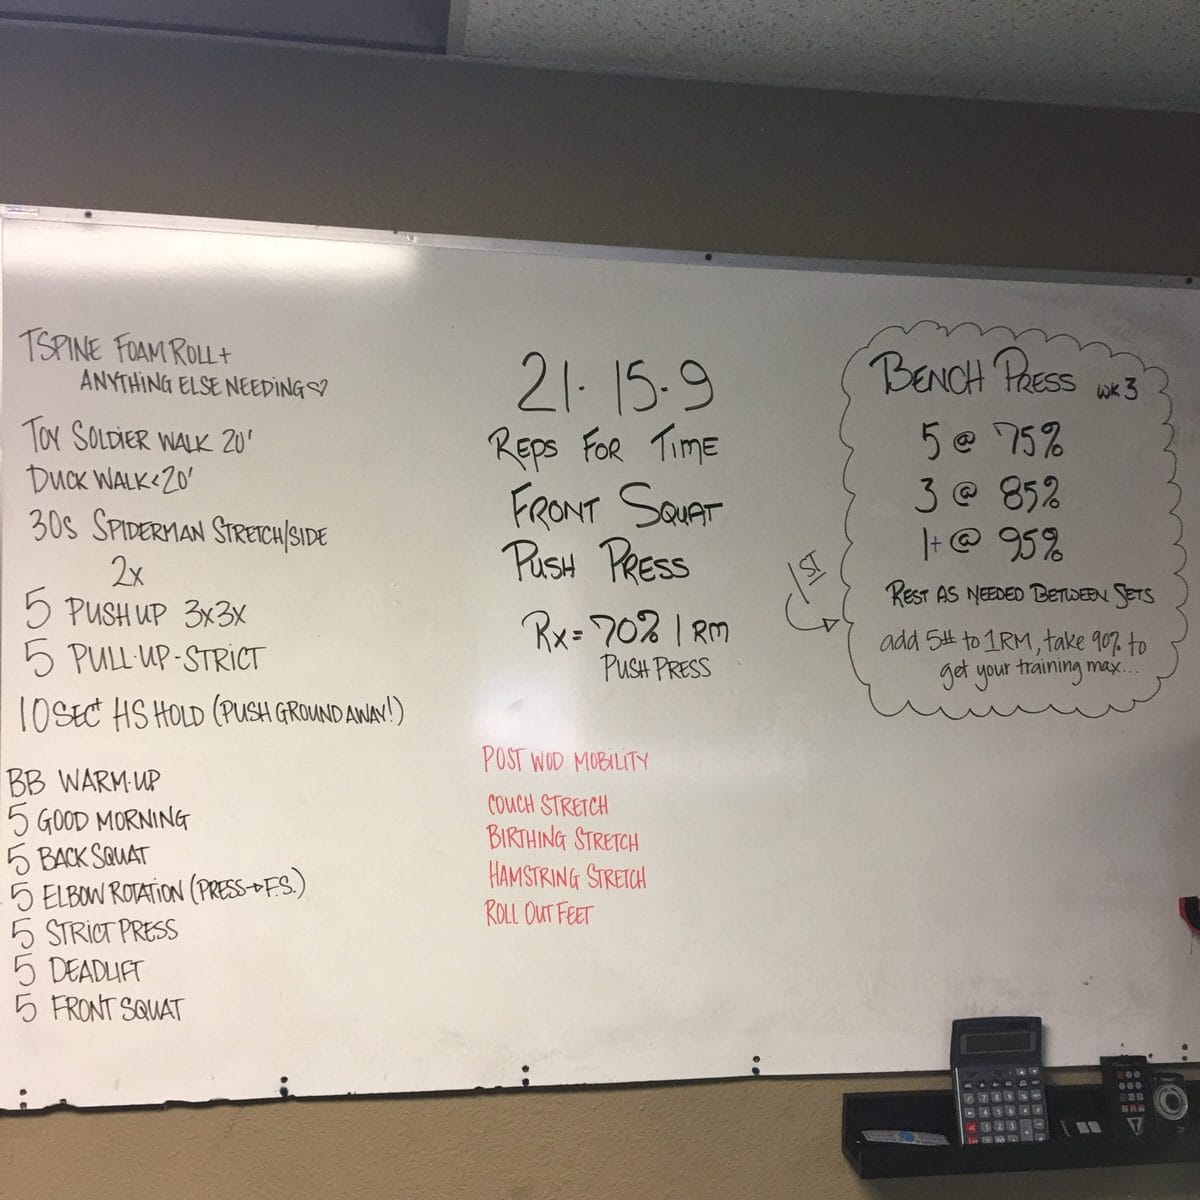 TSPINE FOAM ROLL +
ANYTHING ELSE NEEDING ♡
TOY SOLDIER WALK 20'
DUCK WALK 20'
30s SPIDERMAN STRETCH/SIDE
2x
5 PUSH UP 3x3x
5 PULL-UP-STRICT
10 SEC HS HOLD (PUSH GROUND AWAY!)
BB WARM-UP
5 GOOD MORNING
5 BACK SQUAT
5 ELBOW ROTATION (PRESS→F.S.)
5 STRICT PRESS
5 DEADLIFT
5 FRONT SQUAT
21-15-9
REPS FOR TIME
FRONT SQUAT
PUSH PRESS
Rx = 70% 1 RM
PUSH PRESS
POST WOD MOBILITY
COUCH STRETCH
BIRTHING STRETCH
HAMSTRING STRETCH
ROLL OUT FEET
1ST
BENCH PRESS WK 3
5 @ 75%
3 @ 85%
1+ @ 95%
REST AS NEEDED BETWEEN SETS
add 5# to 1RM, take 90% to
get your training max...